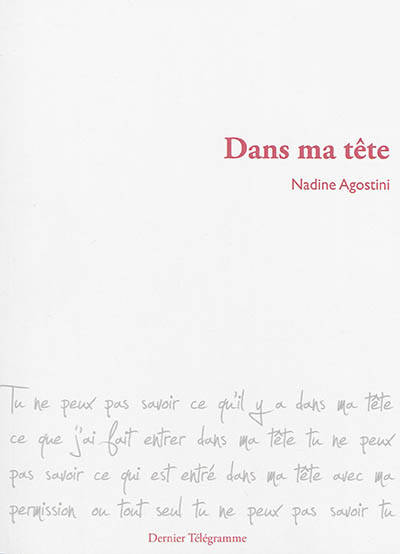 Dans ma tête
Nadine Agostini
Tu ne peux pas savoir ce qu'il y a dans ma tête
ce que j'ai fait entrer dans ma tête tu ne peux
pas savoir ce qui est entré dans ma tête avec ma
permission ou tout seul tu ne peux pas savoir tu
Dernier Télégramme